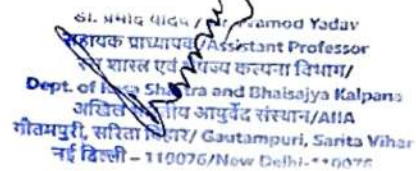 डा. प्रमोद यादव / Pramod Yadav
सहायक प्राध्यापक/Assistant Professor
रस शास्त्र एवं भैषज्य कल्पना विभाग/
Dept. of Rasa Shastra and Bhaisajya Kalpana
अखिल भारतीय आयुर्वेद संस्थान/AIIA
गौतमपुरी, सरिता विहार/ Gautampuri, Sarita Vihar
नई दिल्ली – 110076/New Delhi-110076